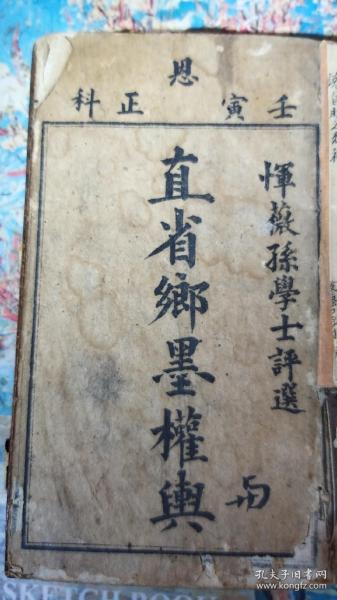 壬寅 恩 正科
惲薇孫學士評選
直省鄉墨權輿
孔夫子旧书网